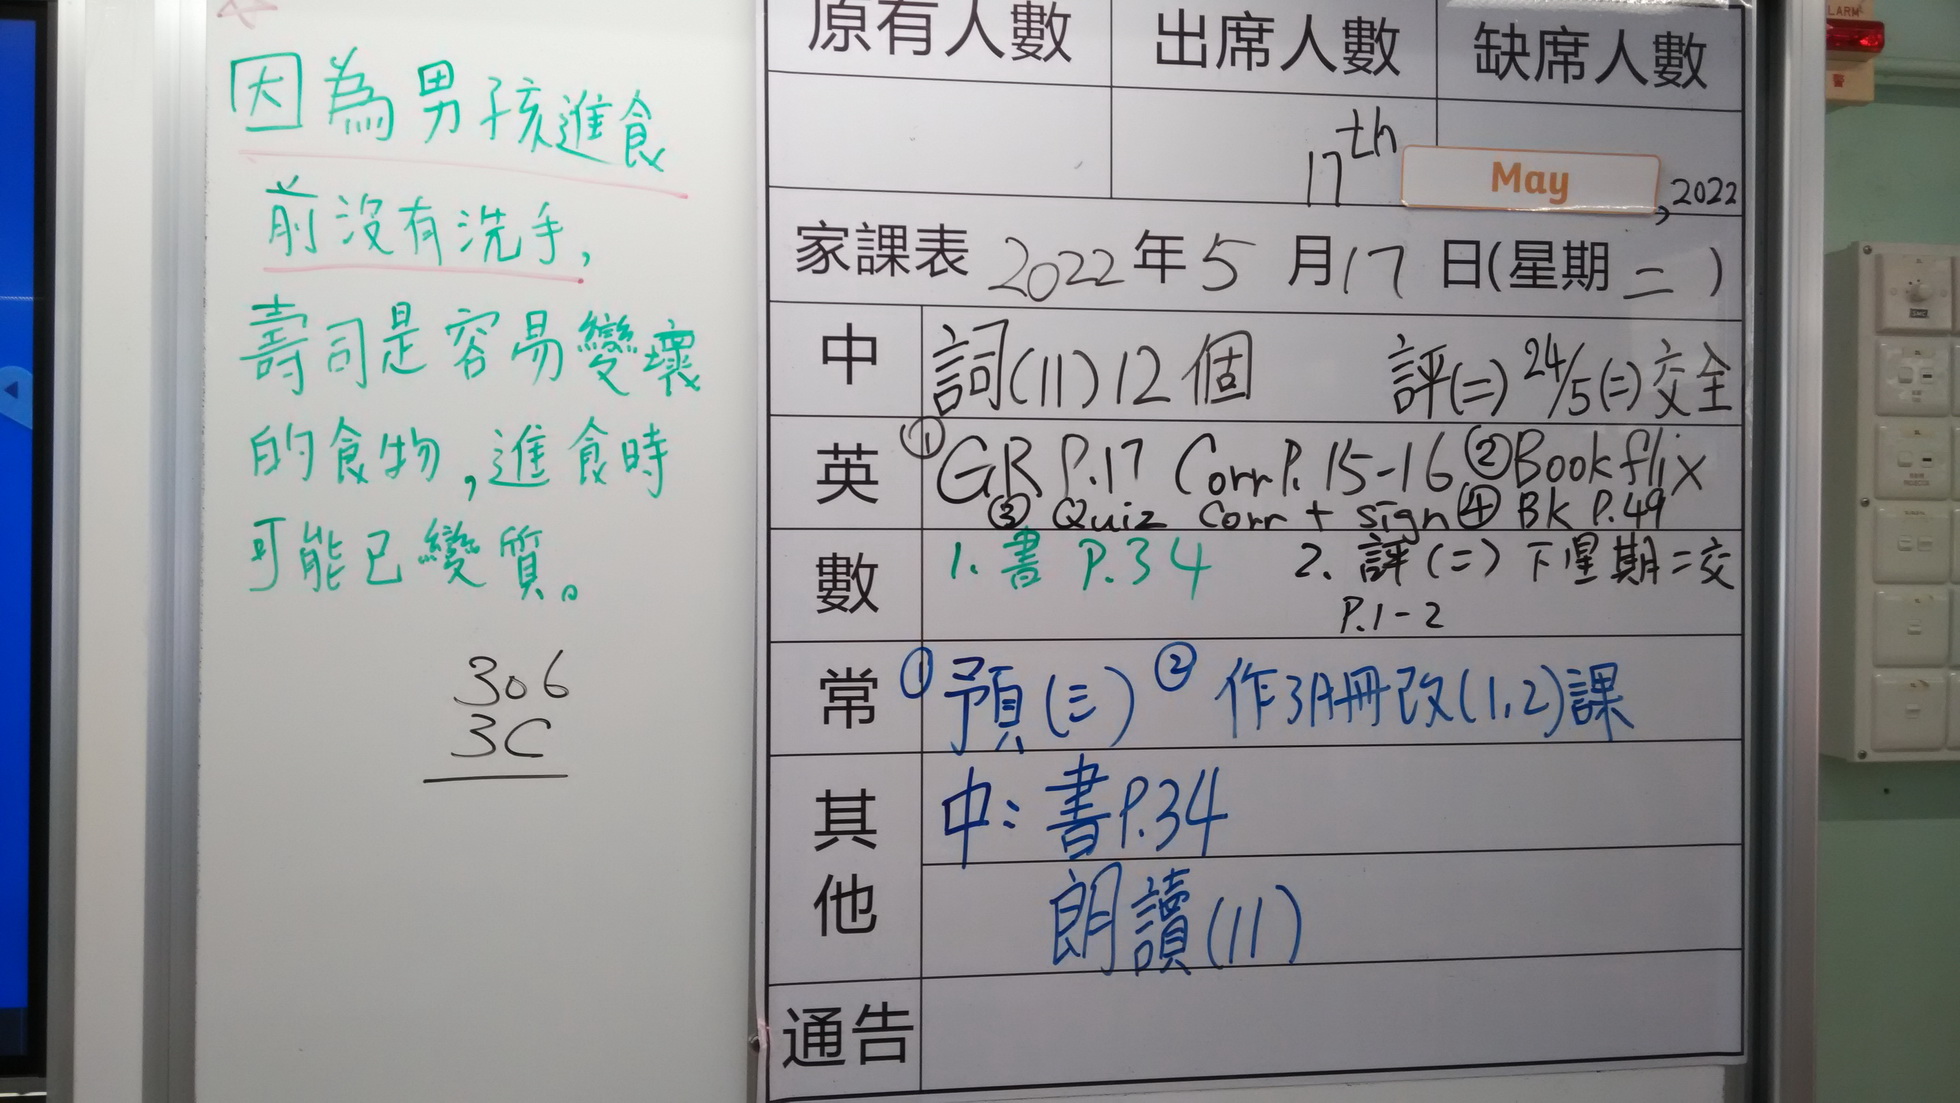 因為男孩進食
前沒有洗手,
壽司是容易變壞
的食物,進食時
可能已變質。
306
3C
原有人數 出席人數 缺席人數
17th May, 2022
家課表 2022年5月17日(星期二)
中 詞(11)12個 評(二) 24/5(二)交全
英 ①GR P.17 Corr P.15-16 ②Bookflix
③ Quiz Corr + sign ④ BK P.49
數 1. 書 P.34 2. 評(二) 下星期二交
P.1-2
常 ①預(三) ② 作3A冊改(1,2)課
其他 中:書P.34
朗讀(11)
通告
ALARM
警